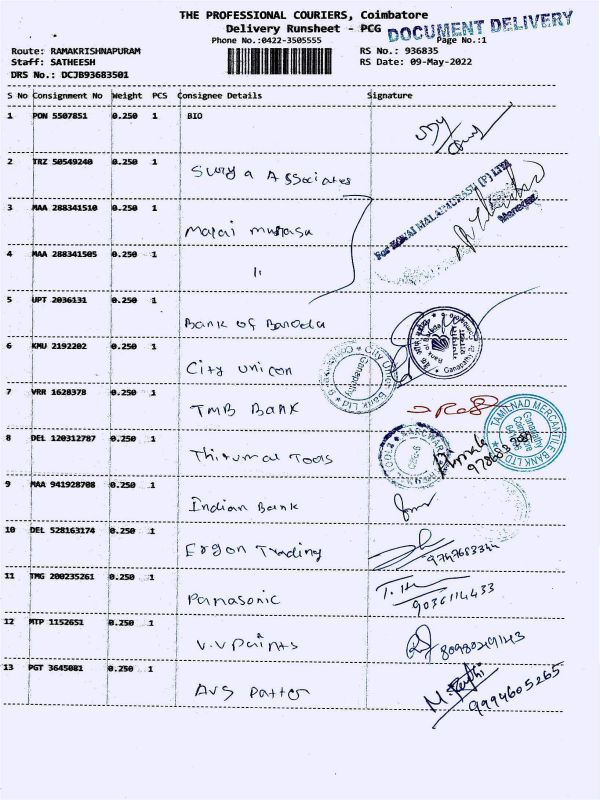 THE PROFESSIONAL COURIERS, Coimbatore
Delivery Runsheet - PCG
DOCUMENT DELIVERY
Phone No.:0422-3505555
Page No.:1
Route: RAMAKRISHNAPURAM
RS No.: 936835
Staff: SATHEESH
RS Date: 09-May-2022
DRS No.: DCJB93683501
S No Consignment No Weight PCS Consignee Details Signature
1 PON 5507851 0.250 1 BIO
2 TRZ 50549240 0.250 1 Surya Associates
For KOVAI MALAI MURASU (P) LTD
Manager
3 MAA 288341510 0.250 1 Malai murasu
4 MAA 288341505 0.250 1 11
5 UPT 2036131 0.250 1 Bank of Baroda
6 KMU 2192202 0.250 1 City Union
City Union Bank Ltd
Ganapathy
7 VRR 1628378 0.250 1 TMB BANK
TAMILNAD MERCANTILE BANK LTD
Ganapathy
Coimbatore
8 DEL 120312787 0.250 1 Thirumal Tools
9 MAA 941928708 0.250 1 Indian Bank
10 DEL 528163174 0.250 1 Ergon Trading
11 TMG 200235261 0.250 1 Panasonic
9036114433
12 MTP 1152651 0.250 1 V.V Paints
13 PGT 3645081 0.250 1 AVS Patter
9994605265